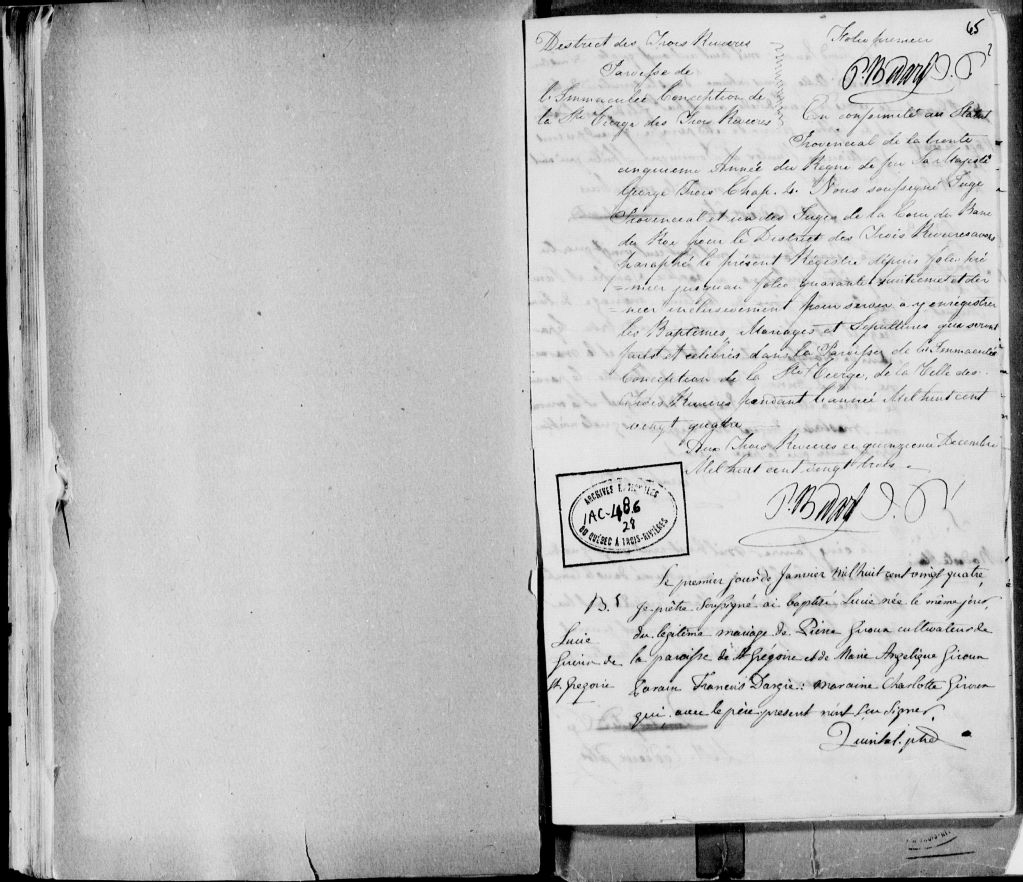 65
District des Trois Rivieres
Paroisse de
l'Immaculée Conception de
la Ste Vierge des Trois Rivieres
Folio premier
P. Bedard J. P.
En conformité au Statut
Provincial de la trente
cinquieme Année du Regne de feu Sa Majesté
George Trois Chap. 4. Nous soussigné Juge
Provincial et un des Juges de la Cour du Banc
du Roi pour le District des Trois Rivieres avons
Paraphé le présent Régistre depuis folio pré
=mier jusqu'au folio quarante huitieme et der
=nier inclusivement pour servir a y enregistrer
les Baptêmes, Mariages et Sépultures qui seront
faits et célébrés dans la Paroisse de l'Immaculée
Conception de la Ste Vierge, de la Ville des
Trois Rivieres pendant l'année Mil huit cent
vingt quatre
Aux Trois Rivieres ce quinzieme Decembre
Mil huit cent vingt trois
P. Bedard J. P.
ARCHIVES NATIONALES
IAC-486
28
DU QUÉBEC À TROIS-RIVIÈRES
B. 5
Lucie
Giroux de
St Gregoire
Le premier jour de Janvier mil huit cent vingt quatre,
Je prêtre soussigné ai baptisé Lucie née le même jour,
du légitime mariage de Pierre Giroux cultivateur de
la paroisse de St Grégoire et de Marie Angelique Giroux
Parain Francois Dargie: maraine Charlotte Giroux
qui avec le père present n'ont scu signer,
Quintal. ptre